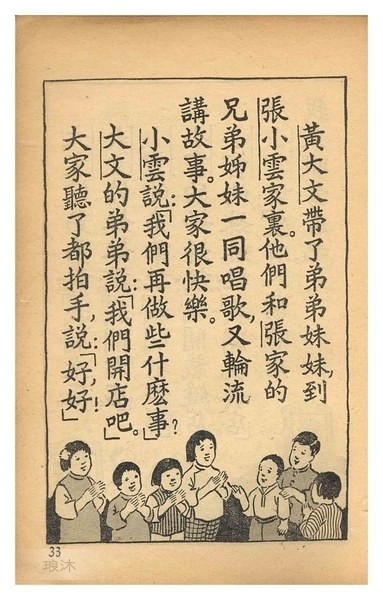 黃大文帶了弟弟妹妹,到
張小雲家裏。他們和張家的
兄弟姊妹一同唱歌,又輪流
講故事。大家很快樂。
小雲說:「我們再做些什麽事?」
大文的弟弟說:「我們開店吧。」
大家聽了都拍手,說:「好,好!」
33
琅沐